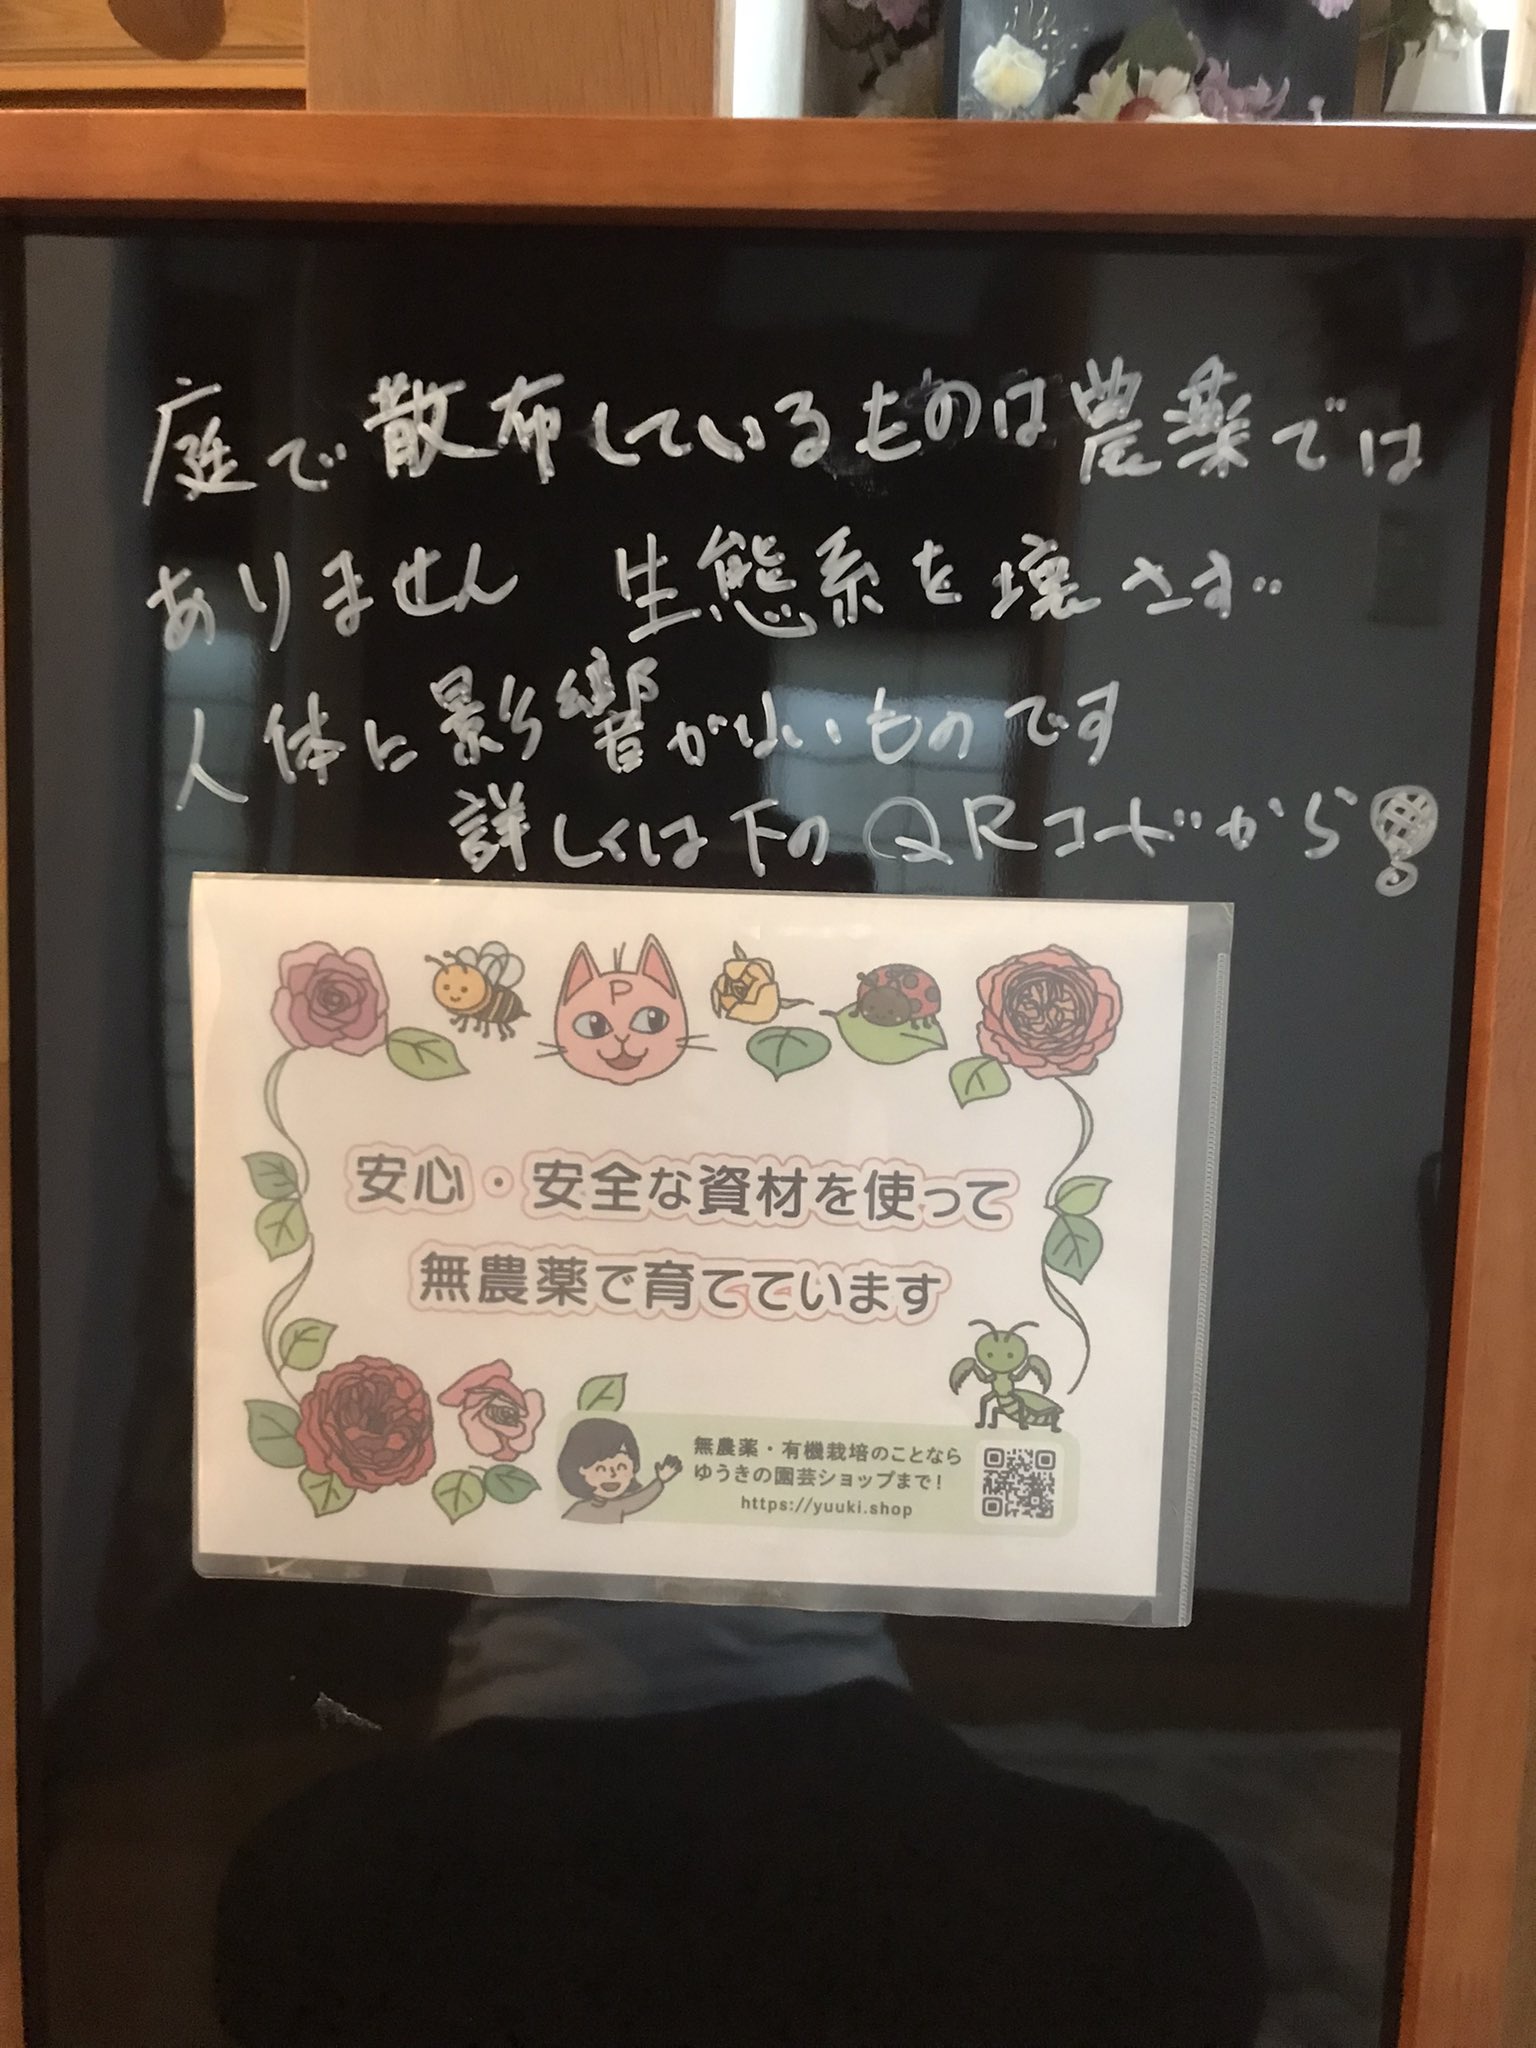 庭で散布しているものは農薬では
ありません 生態系を壊さず
人体に影響がないものです
詳しくは下のQRコードから!
P
安心・安全な資材を使って
無農薬で育てています
無農薬・有機栽培のことなら
ゆうきの園芸ショップまで!
https://yuuki.shop